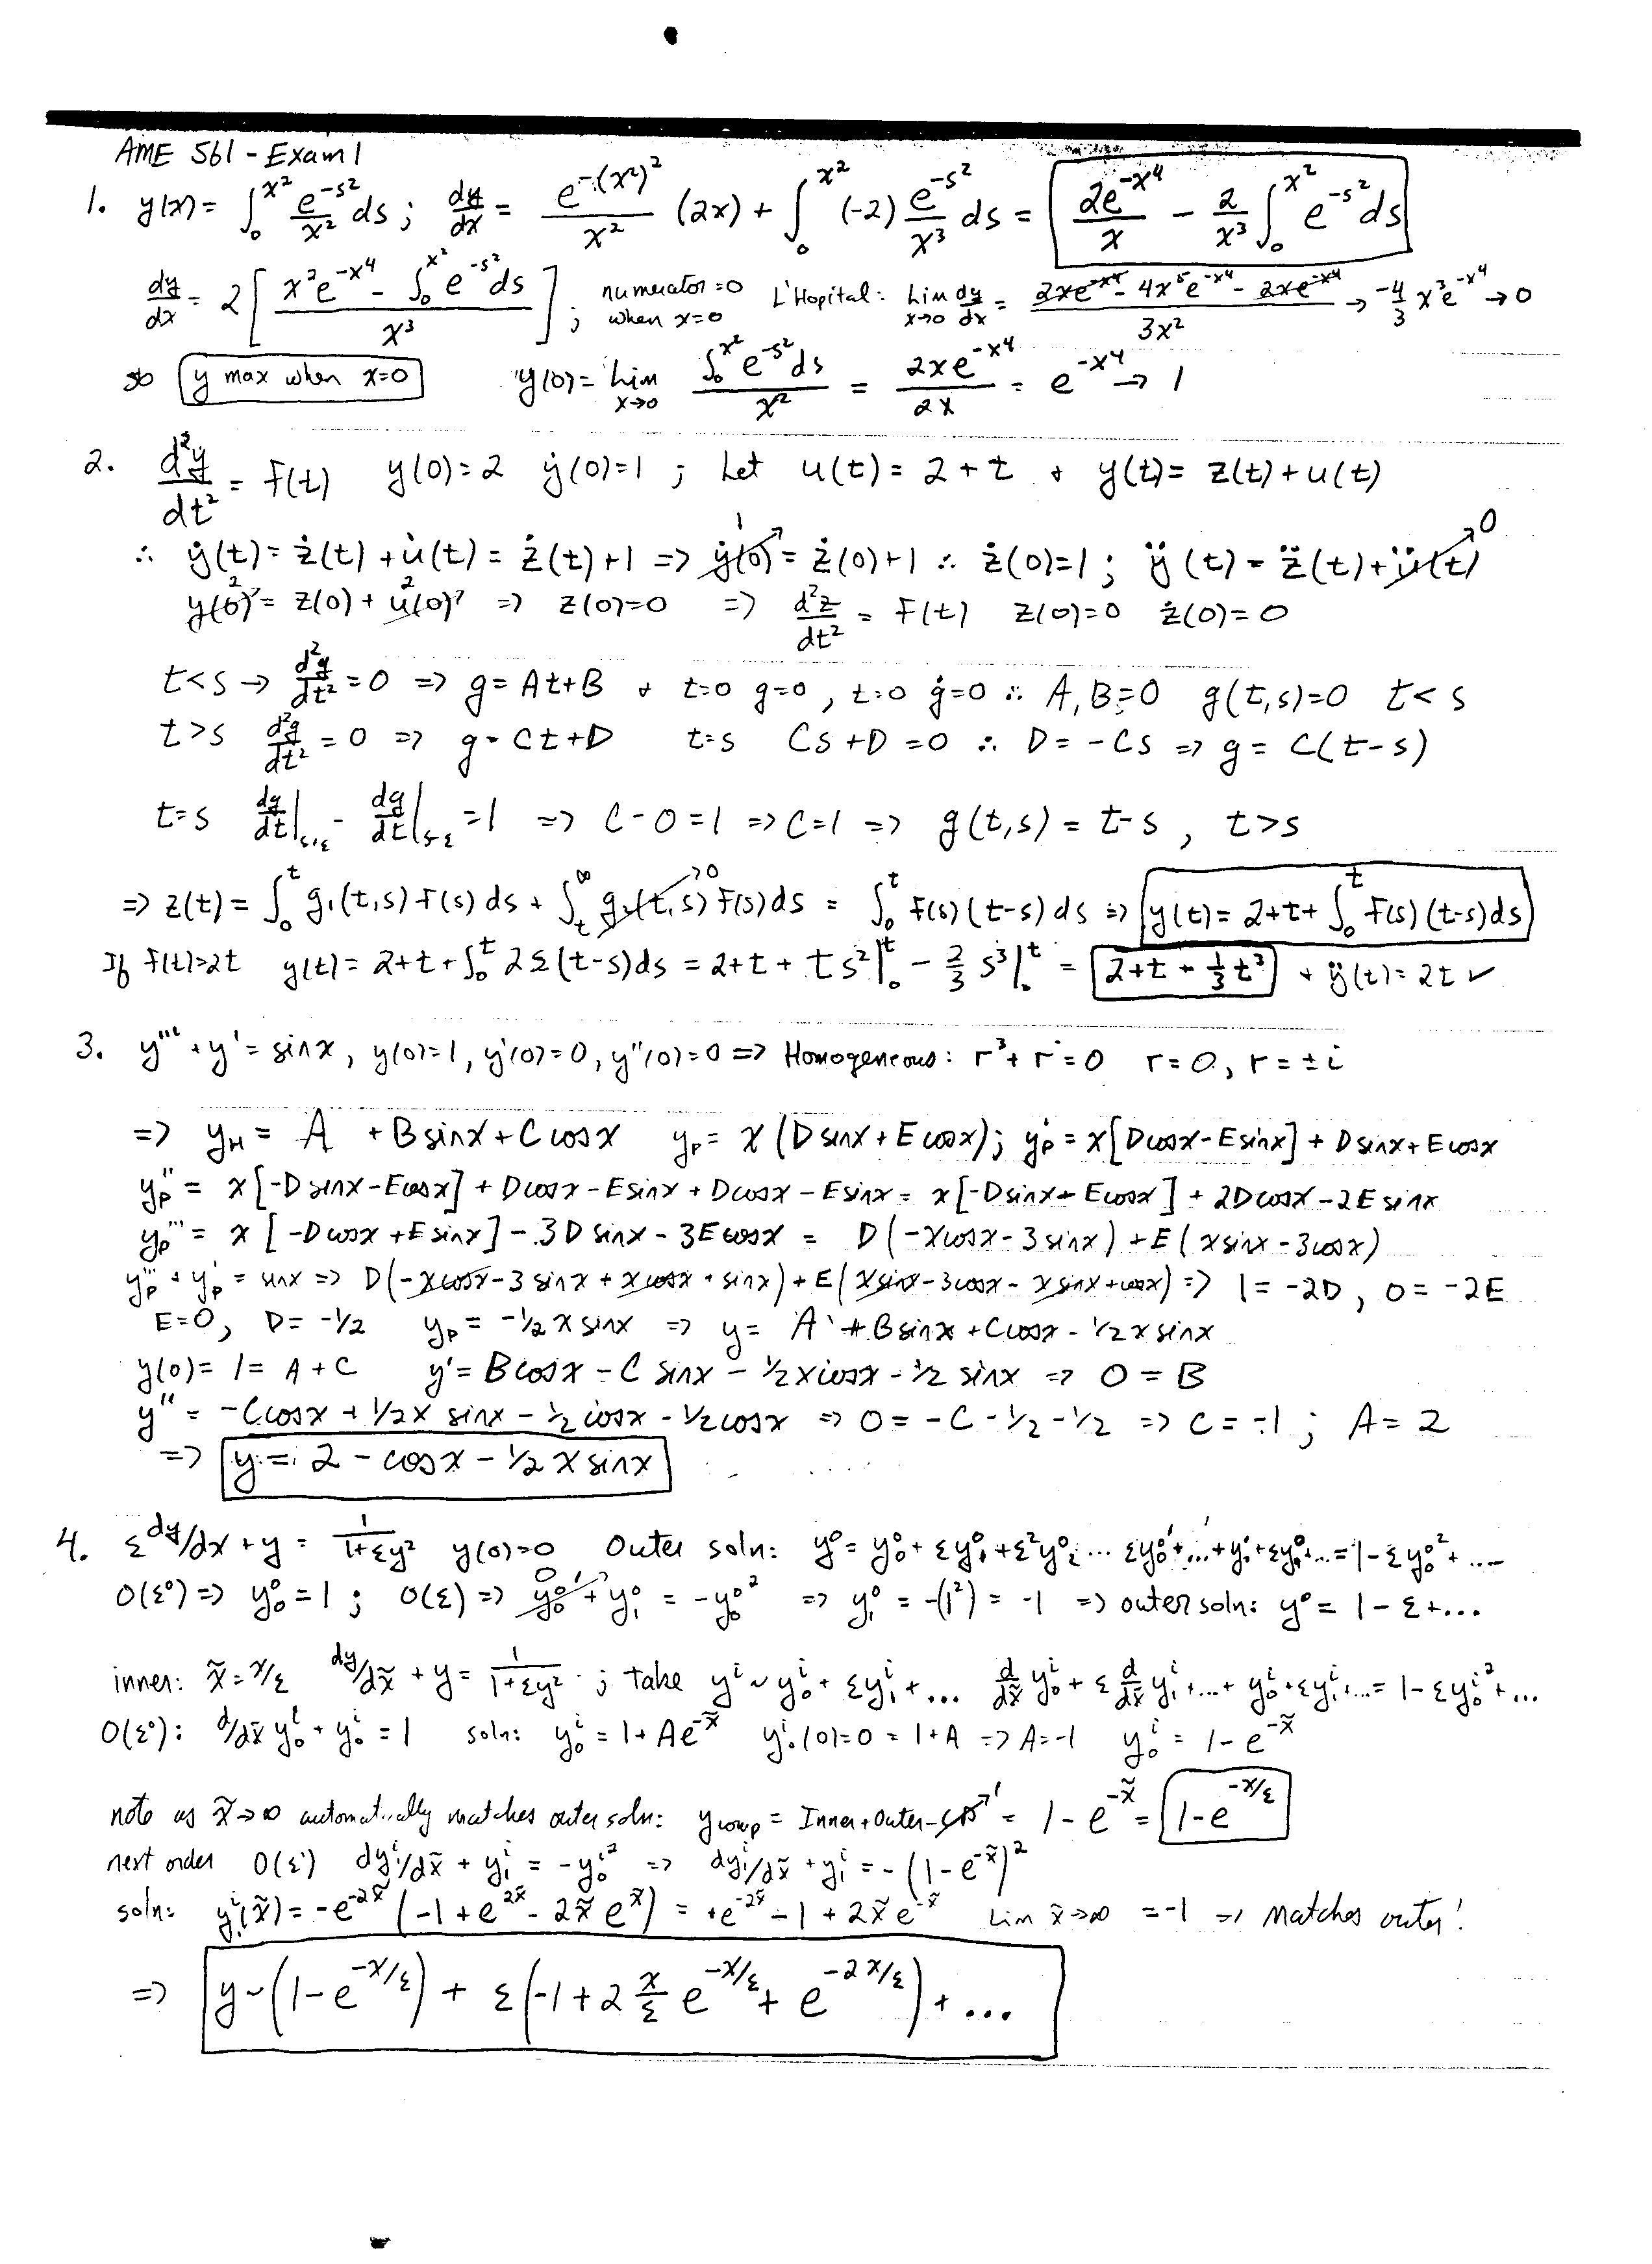 AME 561 - Exam 1
1. y(x) = ∫₀^{x²} e^{-s²}/x² ds ; dy/dx = e^{-(x²)²}/x² (2x) + ∫₀^{x²} (-2) e^{-s²}/x³ ds = 2e^{-x⁴}/x - 2/x³ ∫₀^{x²} e^{-s²} ds
dy/dx = 2[ (x²e^{-x⁴} - ∫₀^{x²} e^{-s²} ds)/x³ ] ; numerator = 0 when x=0 L'Hopital: Lim_{x→0} dy/dx = (2xe^{-x⁴} - 4x⁵e^{-x⁴} - 2xe^{-x⁴})/3x² → -4/3 x³e^{-x⁴} → 0
so y max when x=0 y(0) = Lim_{x→0} ∫₀^{x²} e^{-s²} ds / x² = 2xe^{-x⁴}/2x = e^{-x⁴} → 1
2. d²y/dt² = f(t) y(0)=2 ẏ(0)=1 ; Let u(t) = 2+t + y(t) = z(t)+u(t)
∴ ẏ(t) = ż(t)+u̇(t) = ż(t)+1 ⇒ ẏ(0)^1 = ż(0)+1 ∴ ż(0)=1 ; ÿ(t) = z̈(t)+ü(t)^0
y(0)^2 = z(0)+u(0)^2 ⇒ z(0)=0 ⇒ d²z/dt² = f(t) z(0)=0 ż(0)=0
t<s → d²g/dt² = 0 ⇒ g = At+B + t=0 g=0, t=0 ġ=0 ∴ A,B=0 g(t,s)=0 t<s
t>s d²g/dt² = 0 ⇒ g = Ct+D t=s Cs+D=0 ∴ D=-Cs ⇒ g = C(t-s)
t=s dg/dt|_{s+ε} - dg/dt|_{s-ε} = 1 ⇒ C-0=1 ⇒ C=1 ⇒ g(t,s) = t-s, t>s
⇒ z(t) = ∫₀^t g₁(t,s) f(s) ds + ∫_t^∞ g₂(t,s)^{→0} f(s) ds = ∫₀^t f(s)(t-s) ds ⇒ y(t) = 2+t+∫₀^t f(s)(t-s)ds
If f(t)=2t y(t) = 2+t+∫₀^t 2s(t-s)ds = 2+t+ts²|₀^t - 2/3 s³|₀^t = 2+t+1/3 t³ + ÿ(t) = 2t ✓
3. y''' + y' = sinx, y(0)=1, y'(0)=0, y''(0)=0 ⇒ Homogeneous: r³+r=0 r=0, r=±i
⇒ y_H = A + Bsinx + Ccosx y_P = x(Dsinx+Ecosx); y_P' = x[Dcosx-Esinx]+Dsinx+Ecosx
y_P'' = x[-Dsinx-Ecosx]+Dcosx-Esinx+Dcosx-Esinx = x[-Dsinx-Ecosx]+2Dcosx-2Esinx
y_P''' = x[-Dcosx+Esinx]-3Dsinx-3Ecosx = D(-xcosx-3sinx)+E(xsinx-3cosx)
y_P'''+y_P' = sinx ⇒ D(-xcosx-3sinx+xcosx+sinx)+E(xsinx-3cosx-xsinx+cosx) ⇒ 1=-2D, 0=-2E
E=0, D=-1/2 y_P = -1/2 x sinx ⇒ y = A + Bsinx + Ccosx - 1/2 x sinx
y(0) = 1 = A+C y' = Bcosx - C sinx - 1/2 x cosx - 1/2 sinx ⇒ 0=B
y'' = -Ccosx + 1/2 x sinx - 1/2 cosx - 1/2 cosx ⇒ 0 = -C-1/2-1/2 ⇒ C=-1 ; A=2
⇒ y = 2 - cosx - 1/2 x sinx
4. ε dy/dx + y = 1/(1+εy²) y(0)=0 Outer soln: y° = y₀°+εy₁°+ε²y₂°... εy₀°'+...+y₀°+εy₁°+...=1-εy₀°²+....
O(ε⁰) ⇒ y₀°=1 ; O(ε) ⇒ y₀°'^0 + y₁° = -y₀°² ⇒ y₁° = -(1²) = -1 ⇒ outer soln: y° = 1-ε+...
inner: x̃ = x/ε dy/dx̃ + y = 1/(1+εy²) ; Take yⁱ ~ y₀ⁱ+εy₁ⁱ+... d/dx̃ y₀ⁱ + ε d/dx̃ y₁ⁱ+...+y₀ⁱ+εy₁ⁱ+...=1-εy₀ⁱ²+...
O(ε⁰): d/dx̃ y₀ⁱ + y₀ⁱ = 1 soln: y₀ⁱ = 1+Ae^{-x̃} y₀ⁱ(0)=0=1+A ⇒ A=-1 y₀ⁱ = 1-e^{-x̃}
note as x̃→∞ automatically matches outer soln: y_comp = Inner+Outer-CP^1 = 1-e^{-x̃} = 1-e^{-x/ε}
next order O(ε¹) dy₁ⁱ/dx̃ + y₁ⁱ = -y₀ⁱ² ⇒ dy₁ⁱ/dx̃ + y₁ⁱ = -(1-e^{-x̃})²
soln: y₁ⁱ(x̃) = -e^{-2x̃}(-1+e^{2x̃}-2x̃e^{x̃}) = +e^{-2x̃}-1+2x̃e^{-x̃} Lim x̃→∞ = -1 ⇒ Matches outer!
⇒ y ~ (1-e^{-x/ε}) + ε(-1+2 x/ε e^{-x/ε} + e^{-2x/ε}) + ...